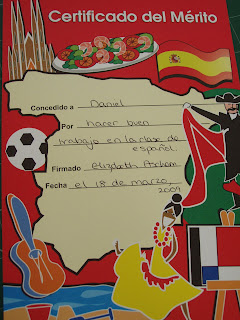 Certificado del Mérito
Concedido a Daniel
Por hacer buen
trabajo en la clase de
español.
Firmado Elizabeth Askam
Fecha el 18 de marzo,
2009